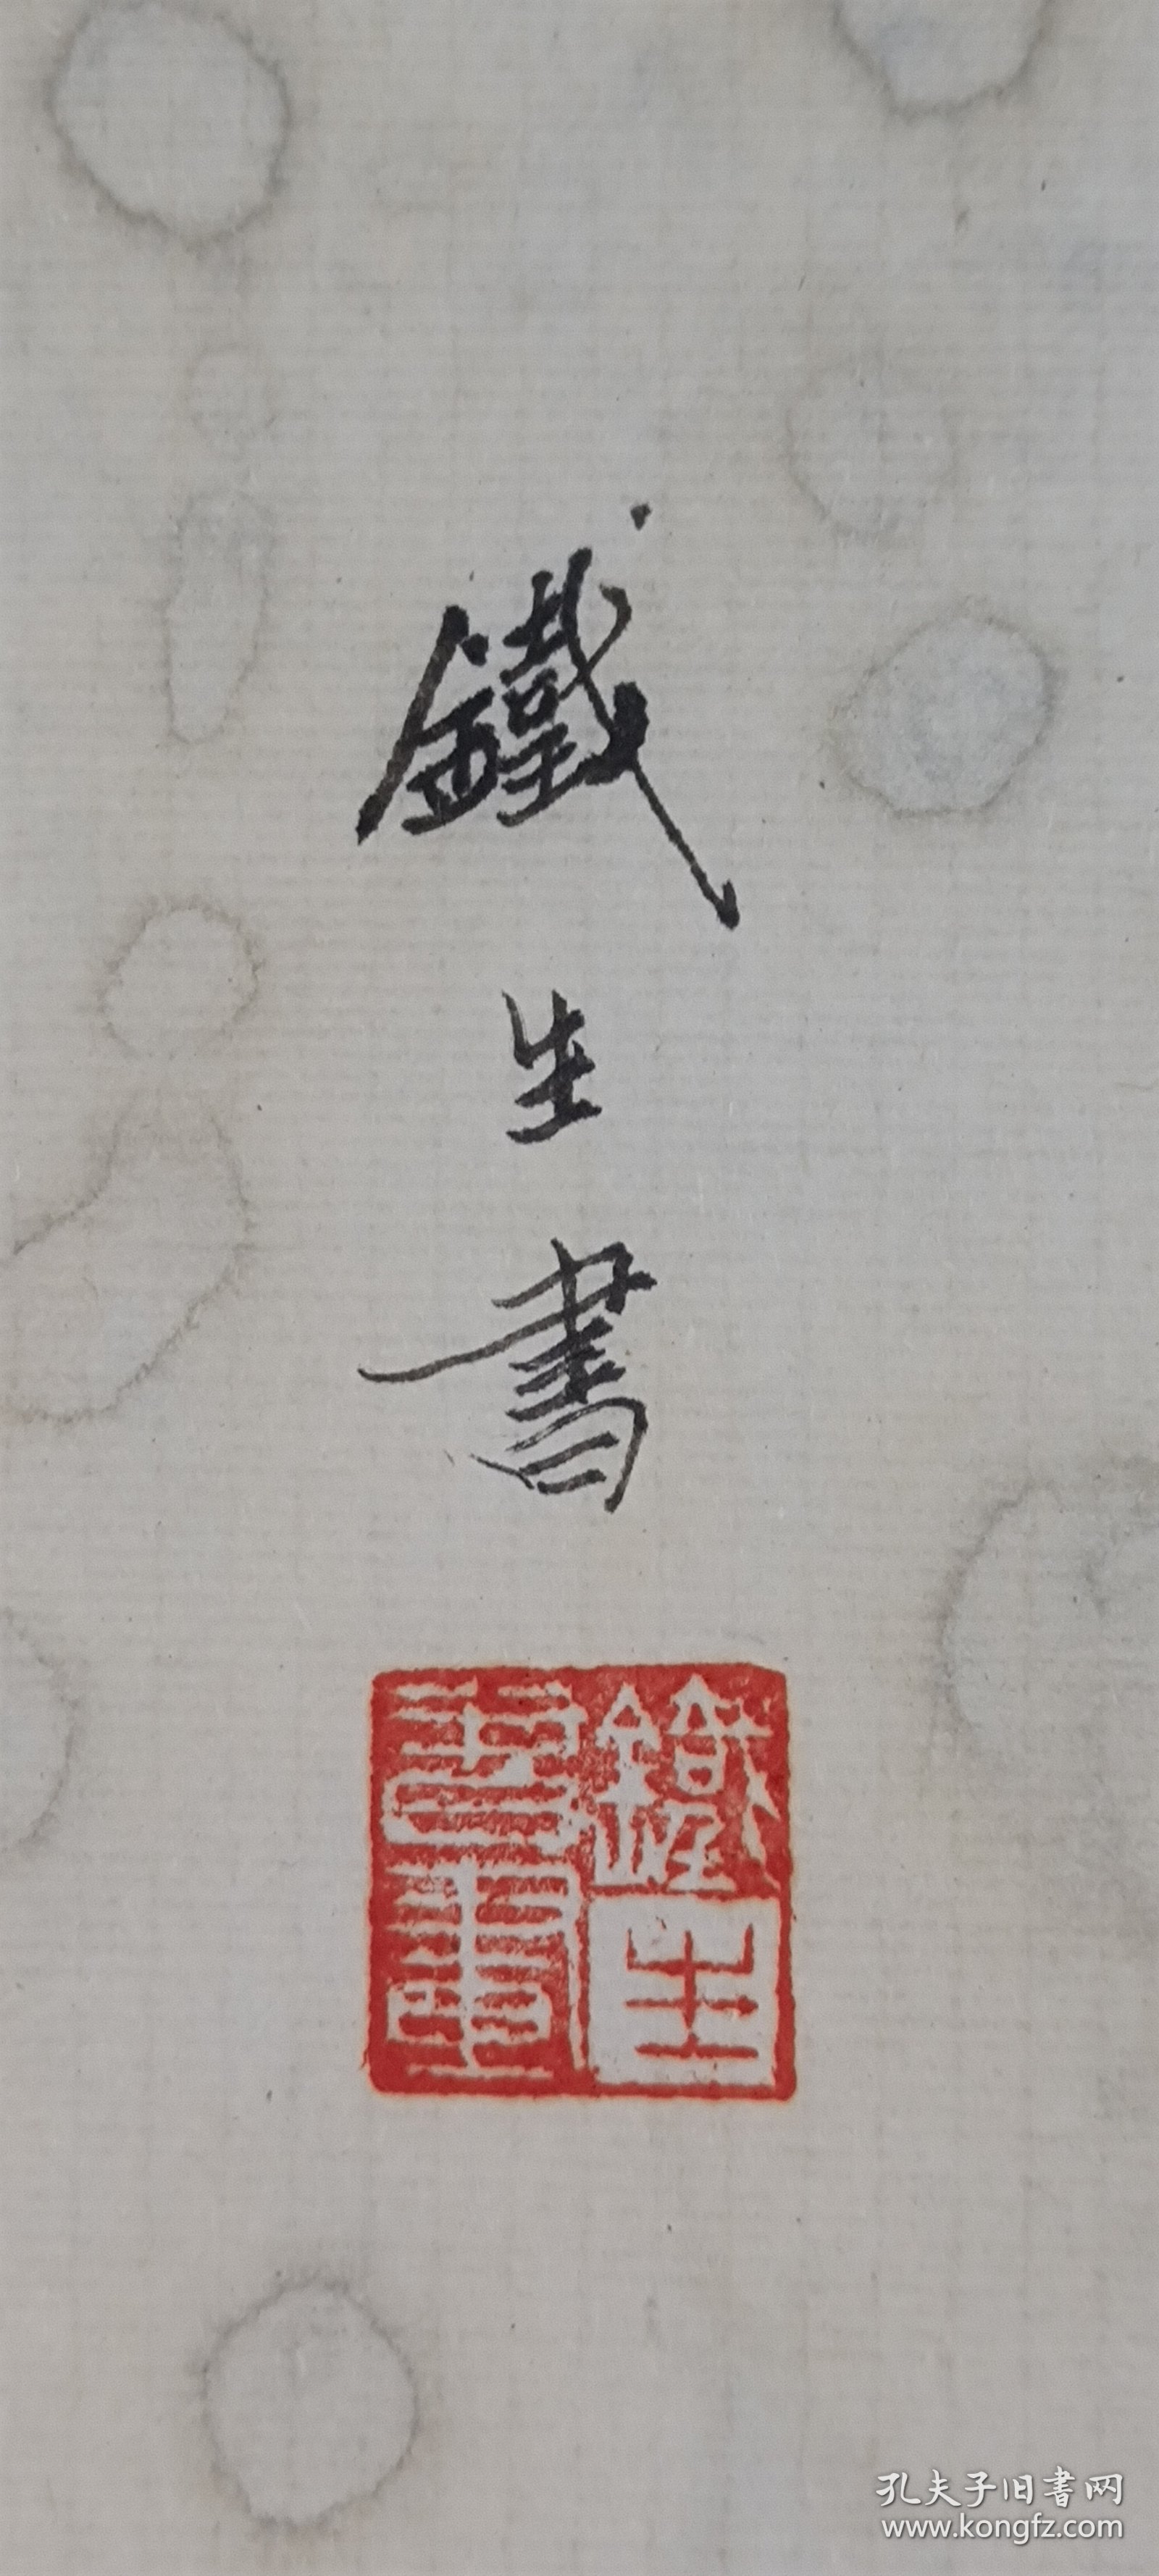 鐵生書
鐵生
書畫
孔夫子旧書网
www.kongfz.com